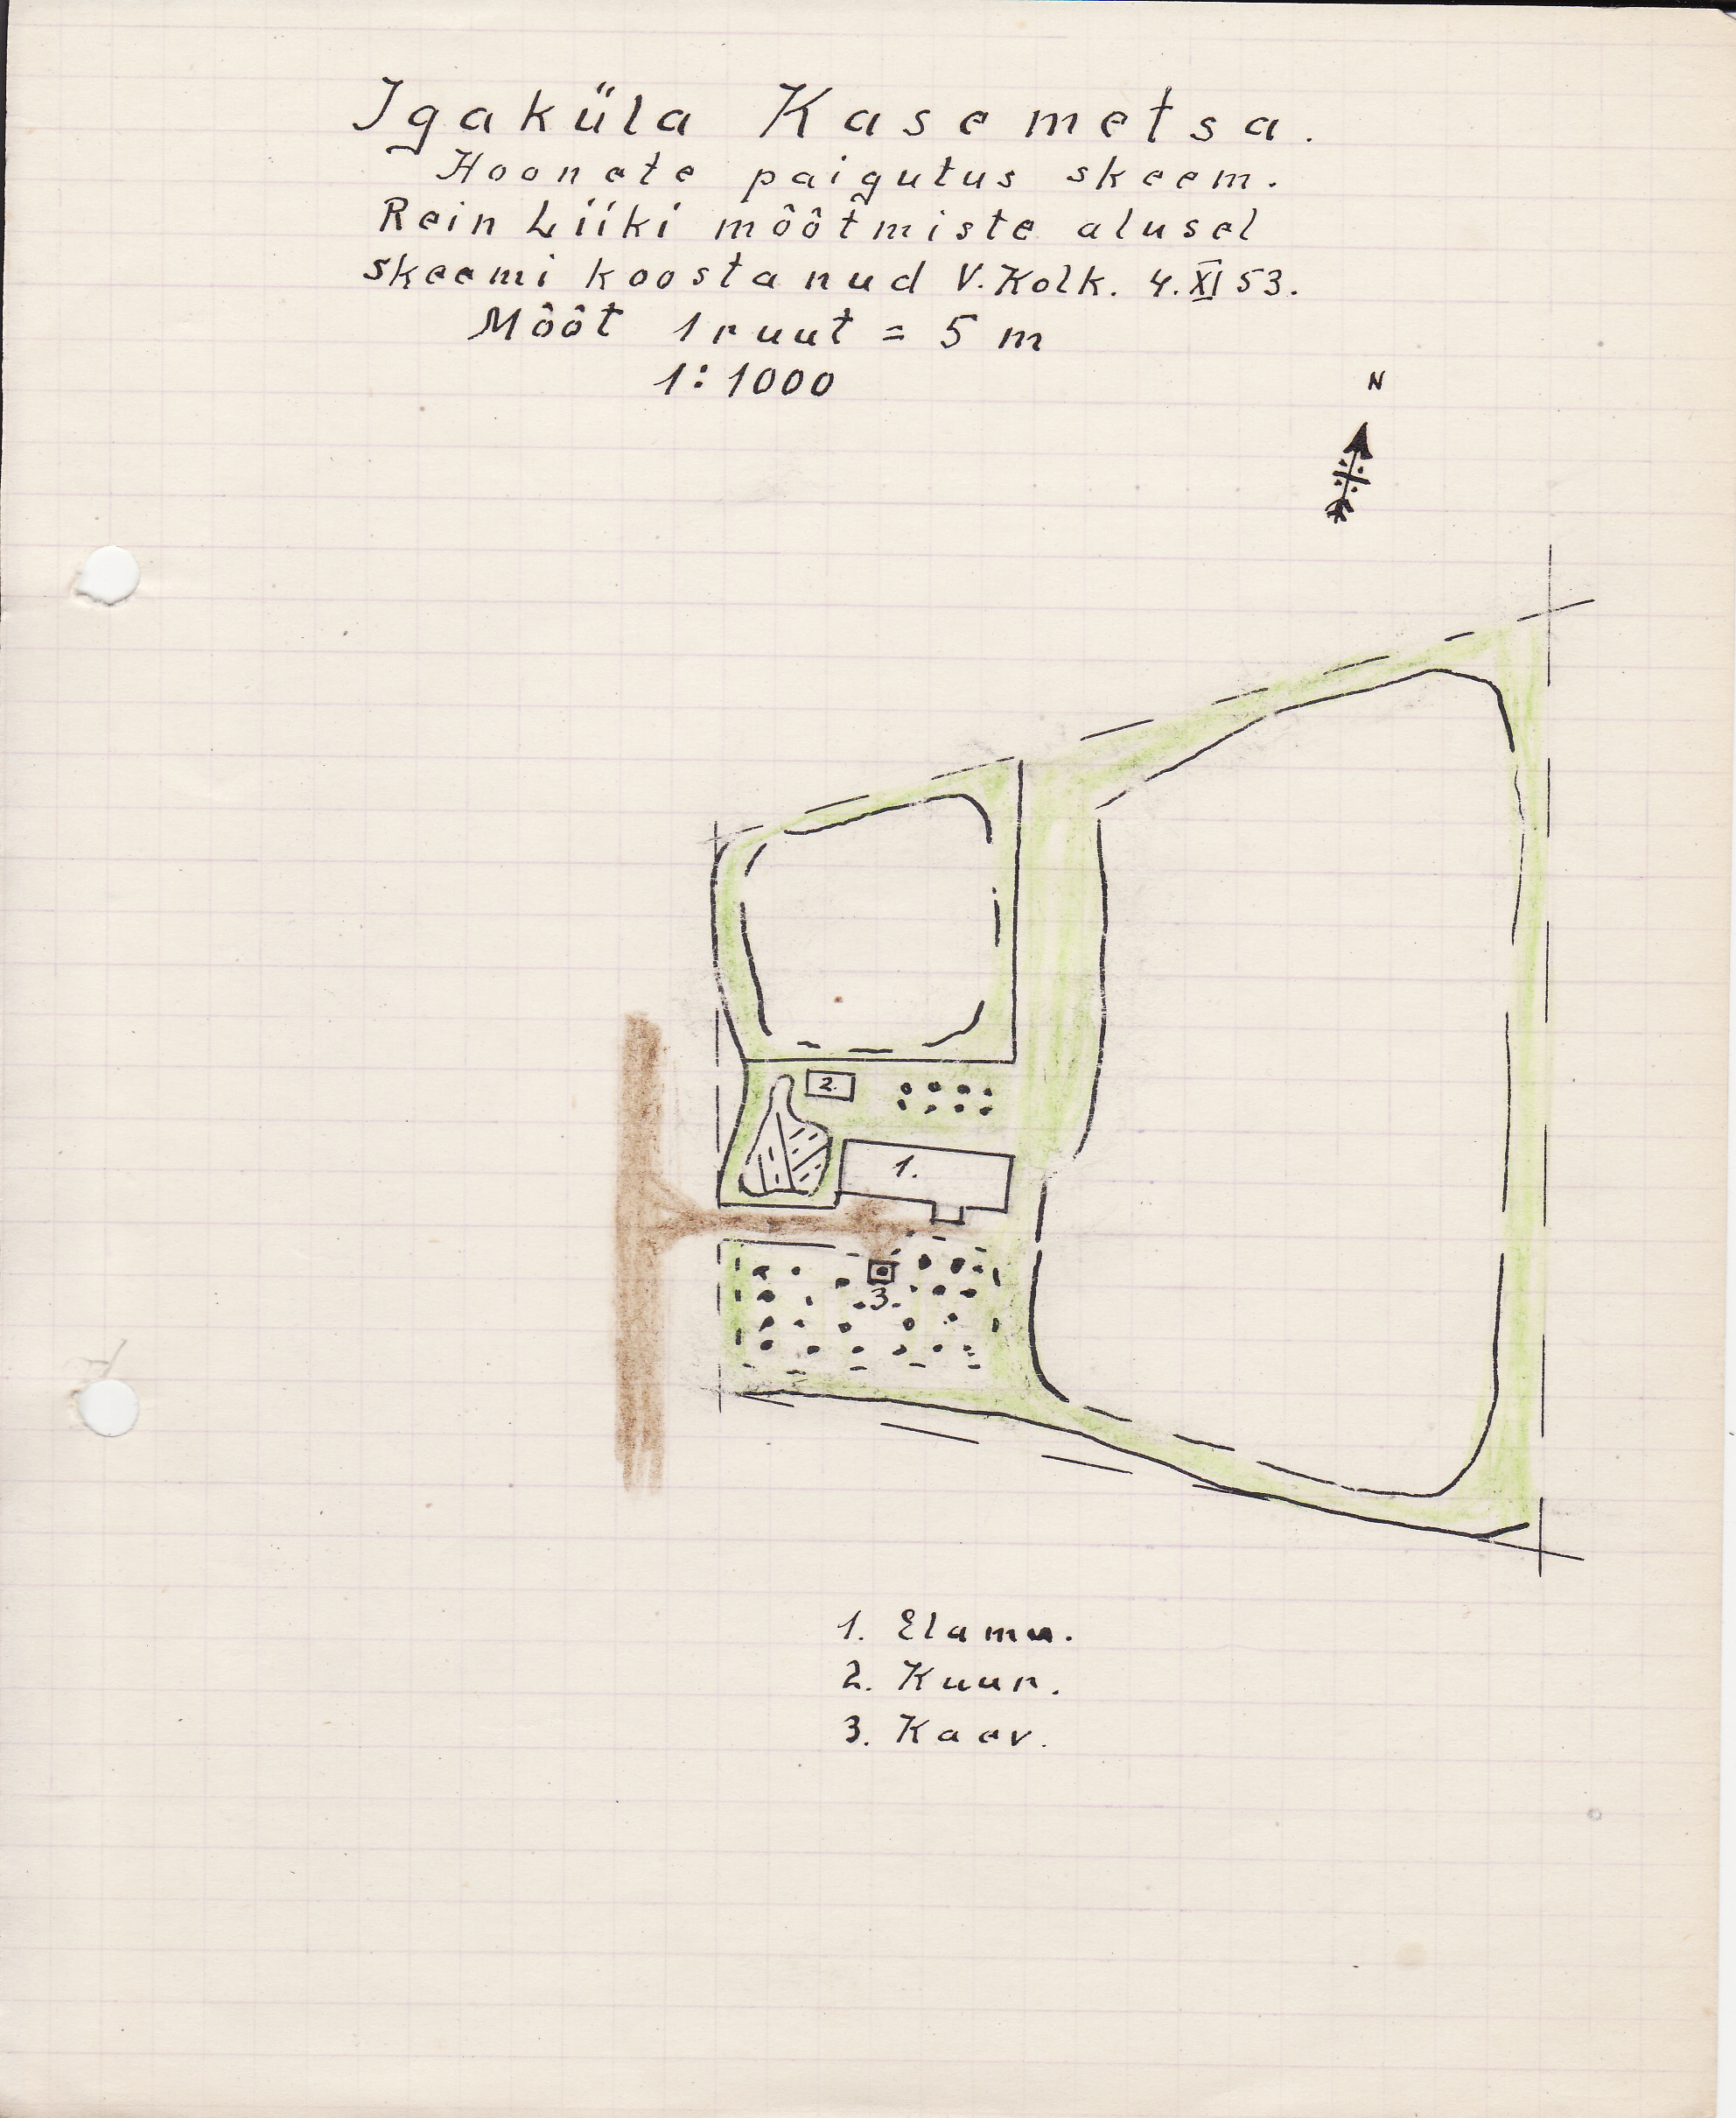 Igaküla Kasemetsa.
Hoonete paigutus skeem.
Rein Liiki mõõtmiste alusel
skeemi koostanud V. Kolk. 4. XI 53.
Mõõt 1 ruut = 5 m
1:1000
N
2.
1.
3.
1. Elamu.
2. Kuur.
3. Kaev.